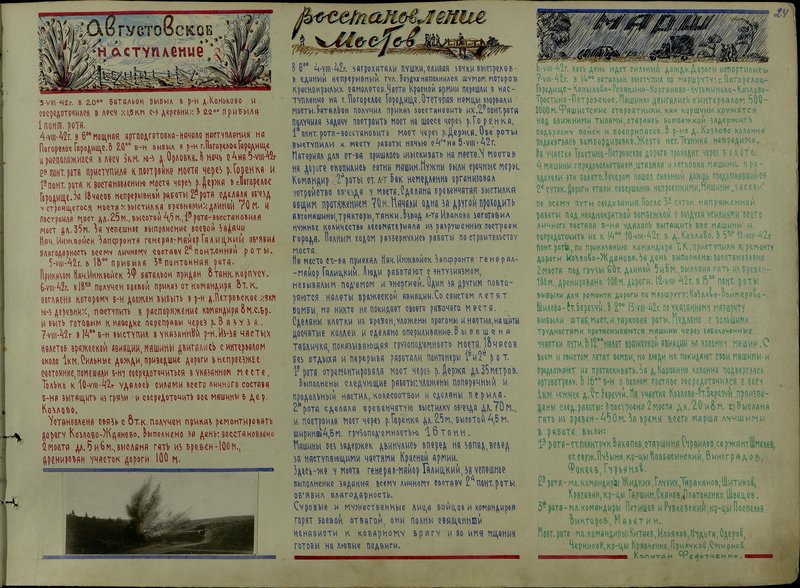 24
Августовское
наступление
3-VIII-42г. в 20⁰⁰ батальон выбыл в р-н д. Коньково и
сосредоточился в лесу
1 понт. рота.
4-VIII-42г. в 6⁰⁰ мощная артподготовка-начало наступления на
Погорелое Городище. В 20⁰⁰ б-н выбыл в р-н г. Погорелое Городище
и расположился в лесу 5км. ю-з д. Орловка. В ночь с 4 на 5-VIII-42г
2ª понт. рота приступила к постройке моста через р. Горенка и
1ª понт. рота к востановлению моста через р. Держа в Погорелое
Городище. За 18 часов непрерывной работы 2ª рота сделала объезд
у строящегося моста: выстилка бревнами: длиной 70 м. и
построила мост дл. 25м, высотой 4,5м. 1ª рота-восстановила
мост дл. 35м. За успешное выполнение боевой задачи
Нач. Инжвойск Запфронта генерал-майор Галицкий объявил
благодарность всему личному составу 2ª понтонной роты.
5-VIII-42г. в 18⁰⁰ прибыла 3ª понтонная рота.
Приказом Нач.Инжвойск ЗФ батальон придан 8 танк. корпусу.
6-VIII-42г. в 18⁰⁰ получен боевой приказ от командира 8 т.к.
согласно которому б-н должен выбыть в р-н д. Петровское
н-з деревни, поступить в распоряжение командира 8 м.с.бр.
и быть готовым к наводке переправы через р. Вазуза.
7-VIII-42г. в 14⁰⁰ б-н выступил в указанный р-н. Из-за частых
налетов вражеской авиации, машины двигались с интервалом
около 1 км. Сильные дожди, приведшие дороги в непроезжее
состояние, помешали б-ну сосредоточиться в указанном месте.
Только к 10-VIII-42г удалось силами всего личного состава
б-на вытащить из грязи и сосредоточить все машины в дер.
Козлово.
Установлена связь с 8 т.к. получен приказ ремонтировать
дорогу Козлово-Жданово. Выполнено за день: восстановлено
2 моста дл. 5 и 6м., выслана гать из бревен-100м.,
дренирован участок дороги 100 м.
Восстановление
Мостов
В 6⁰⁰ 4-VIII-42г. загрохотали пушки, сливая звуки выстрелов
в единый непрерывный гул. Воздух наполнился шумом моторов
краснокрылых самолетов. Части Красной армии перешли в нас-
тупление на г. Погорелое Городище. Отступая немцы взорвали
мосты. Батальон получил приказ восстановить их. 2ª понт. рота
получила задачу построить мост на шоссе через р. Горенка,
1ª понт. рота-восстановить мост через р. Держа. Обе роты
выступили к месту работы ночью с 4ª на 5-VIII-42г.
Материал для ст-ва пришлось изыскивать на месте. У мостов
на дороге скопились сотни машин. Нужны были срочные меры.
Командир 2ª роты ст. л-т Вак немедленно организовал
устройство объезда у моста. Сделана бревенчатая выстилка
общим протяжением 70м. Начали одна за другой проходить
автомашины, трактора, танки. Взвод л-та Иванова заготовил
нужное количество лесоматериала из разрушенных построек
города. Полным ходом развернулись работы по строительству
моста.
На место ст-ва приехал Нач. Инжвойск Запфронта генерал-
-майор Галицкий. Люди работают с энтузиазмом,
небывалым подъемом и энергией. Один за другим повто-
ряются налеты вражеской авиации. Со свистом летят
бомбы, но никто не покидает своего рабочего места.
Сделаны клетки из бревен, уложены прогоны и настил, нашиты
досчатые колеи и сделано оперилвание. Вывешена
табличка, показывающая грузоподъемность моста. 18 часов
без отдыха и перерыва работали понтонеры 1ª и 2ª рот.
1ª рота отремонтировала мост через р. Держа дл. 35 метров.
Выполнены следующие работы: уложены поперечный и
продольный настил, колесоотбои и сделаны перила.
2ª рота сделала бревенчатую выстилку объезда дл. 70 м.,
и построила мост через р. Горенка дл. 25м, высотой 4,5м.
шириной 4,6м. грузоподъемностью 16 тонн.
Машины без задержек двинулись вперед на запад, вслед
за наступающими частями Красной армии.
Здесь-же у моста генерал-майор Галицкий, за успешное
выполнение задания всему личному составу 2ª понт. роты
объявил благодарность.
Суровые и мужественные лица бойцов и командиров
горят боевой отвагой, они полны священной
ненависти к коварному врагу и во имя мщения
готовы на любые подвиги.
Марш
6-VIII-42г. весь день идет сильный дождь. Дороги испортились
7-VIII-42г. в 14⁰⁰ батальон выступил по маршруту: г. Погорелое-
Городище-Копилово-
Тростино-Петровское. Машины с интервалом 500-
1000м. Фашистские стервятники, как коршуны кружатся
над ближними тылами, стараясь бомбежкой задержать
подброску войск и боеприпасов. В р-не д. Козлово колонна
подверглась бомбардировке. Жертв нет. Техника невредима.
На участке Тростино-Петровское дорога проходит через болото.
4 машины с продовольствием, штабная и легковая машины, пре-
одолели это болото. Вечером пошел сильный дождь продолжавшийся
2ª суток. Дороги стали совершенно непроезжими. Машины "засели"
по всему пути следования. После 3ª суток напряженной
работы под неоднократной бомбежкой с воздуха усилиями всего
личного состава б-на удалось вытащить все машины и
сосредоточить их к 14⁰⁰ 10-VIII-42г. в д. Козлово.
понт. роты, по приказанию командира 8т.к. приступили к ремонту
дороги Козлово-Жданово. За день выполнено: восстановлено
2 моста под грузы 60т. длиной 5 и 6м. выслана гать из бревен-
100м, дренировано 100м. дороги. 12-VIII-42г. в 15⁰⁰ понт. роты
выбыли для ремонта дороги по маршруту: Козлово-
Шилово-Ст. Березуй. В 2⁰⁰ 13-VIII-42г. по указанному маршруту
выбыли штаб, мост. и парковая роты. Медлено с большими
трудностями протаскиваются машины через заболоченые
участки пути. В 12⁰⁰ налет вражеской авиации на колонну машин. С
воем и свистом летят бомбы, но люди не покидают свои машины и
продолжают их протаскивать. За д. Коровино колонна подверглась
артобстрелу. В 16⁰⁰ б-н в полном составе сосредоточился в лесу
1км южнее д. Ст. Березуй. На участке Козлово-Ст. Березуй произве-
дены след. работы: построено 2 моста дл. 20 и 8м. 2) выслана
гать из бревен - 450м. За время всего марша лучшими
в работе были:
1ª рота-ст. политрук Вахапов, старшина Сураилов, сержант Шмелев,
ст. серж. Пузыня, кр-цы Ковбасинский, Виноградов,
Фокеев, Гурьянов.
2ª рота- мл. командиры: Жидких, Глухих, Тараканов, Шитиков,
Красавин, кр-цы Гаршин, Сканов, Платоненко, Швецов.
3ª рота- мл. командиры Петишев и Рублевский, кр-цы Поспелов,
Викторов, Малетин.
Мост. рота мл. командиры: Китаев, Ильяков, Нудьга, Одеров,
Чернилой, кр-цы Кравченко, Прилуков, Смирнов.
Капитан Федотченко.